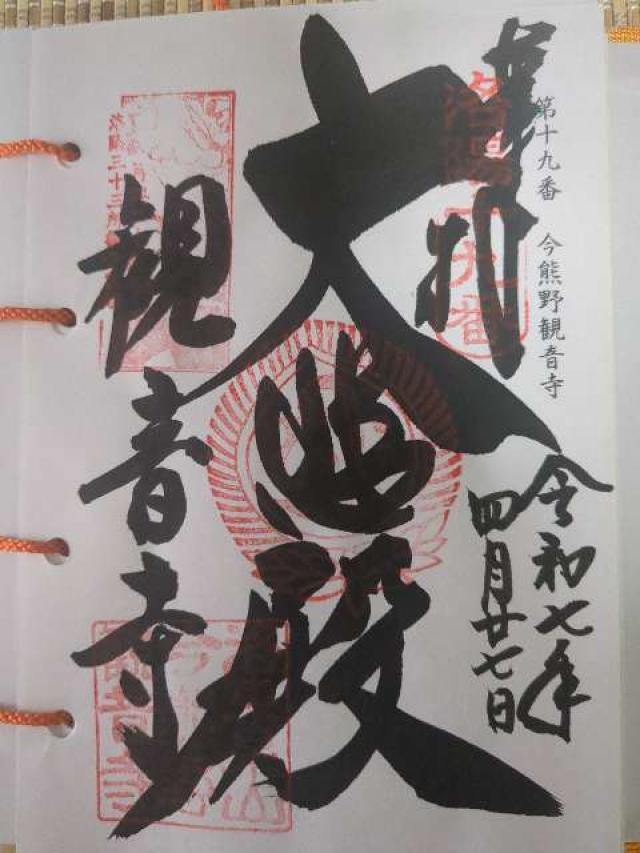 第十九番 今熊野観音寺
奉拝
令和七年
四月廿七日
大悲殿
観音寺
洛陽十九番
洛陽三十三所